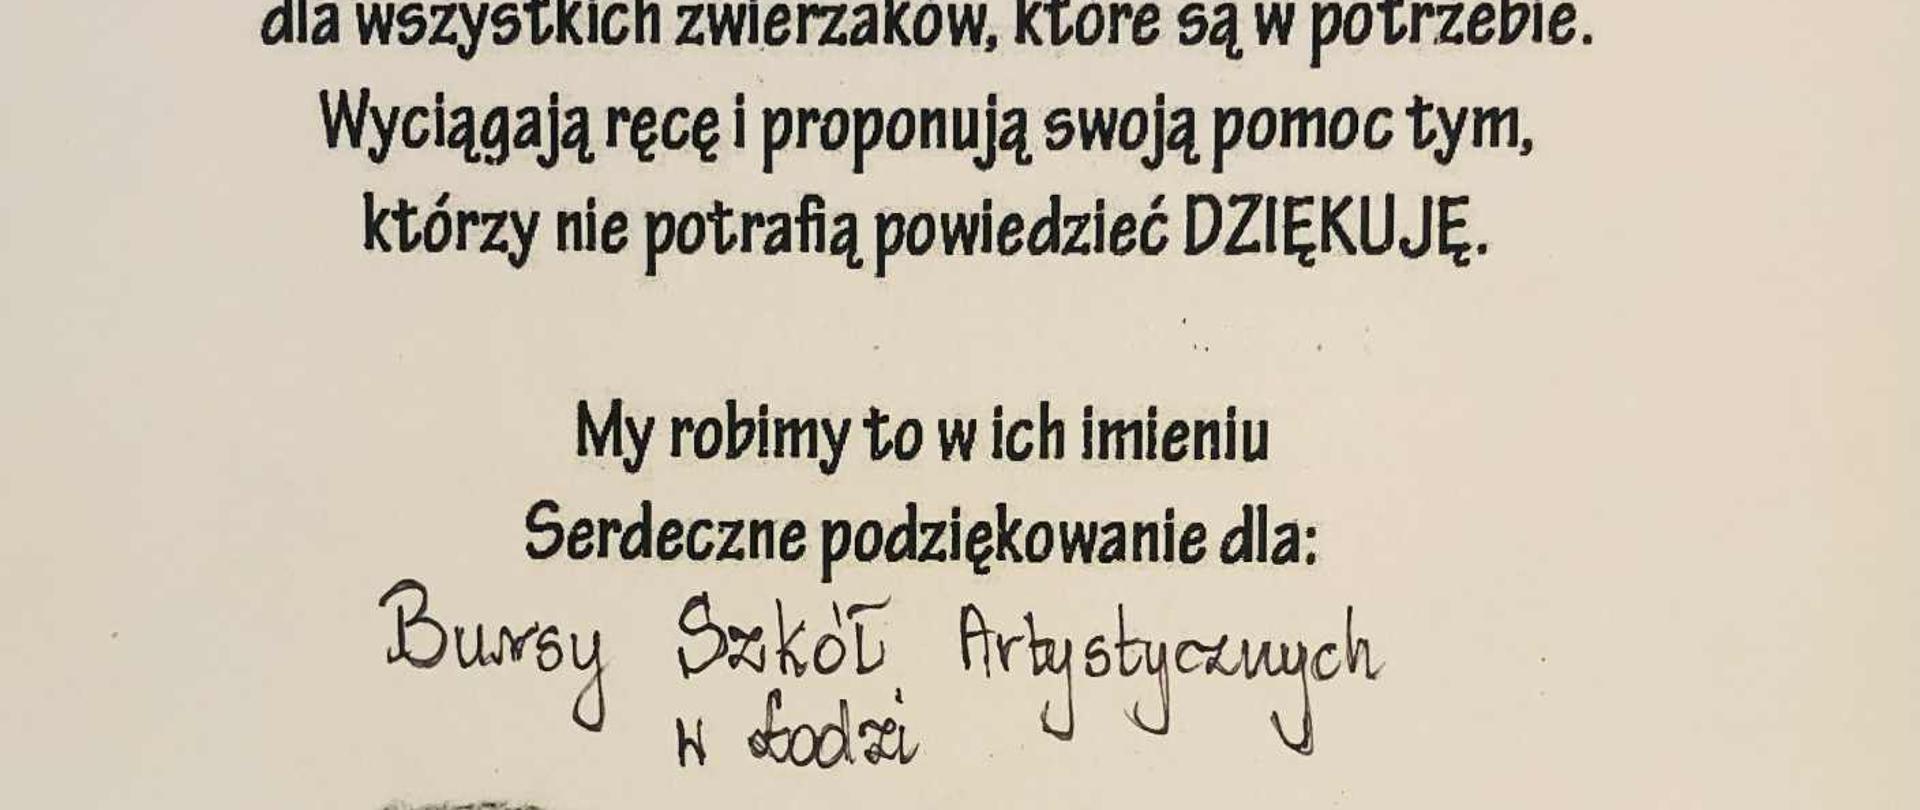 dla wszystkich zwierzaków, które są w potrzebie.
Wyciągają ręcę i proponują swoją pomoc tym,
którzy nie potrafią powiedzieć DZIĘKUJĘ.
My robimy to w ich imieniu
Serdeczne podziękowanie dla:
Bursy Szkół Artystycznych
w Łodzi